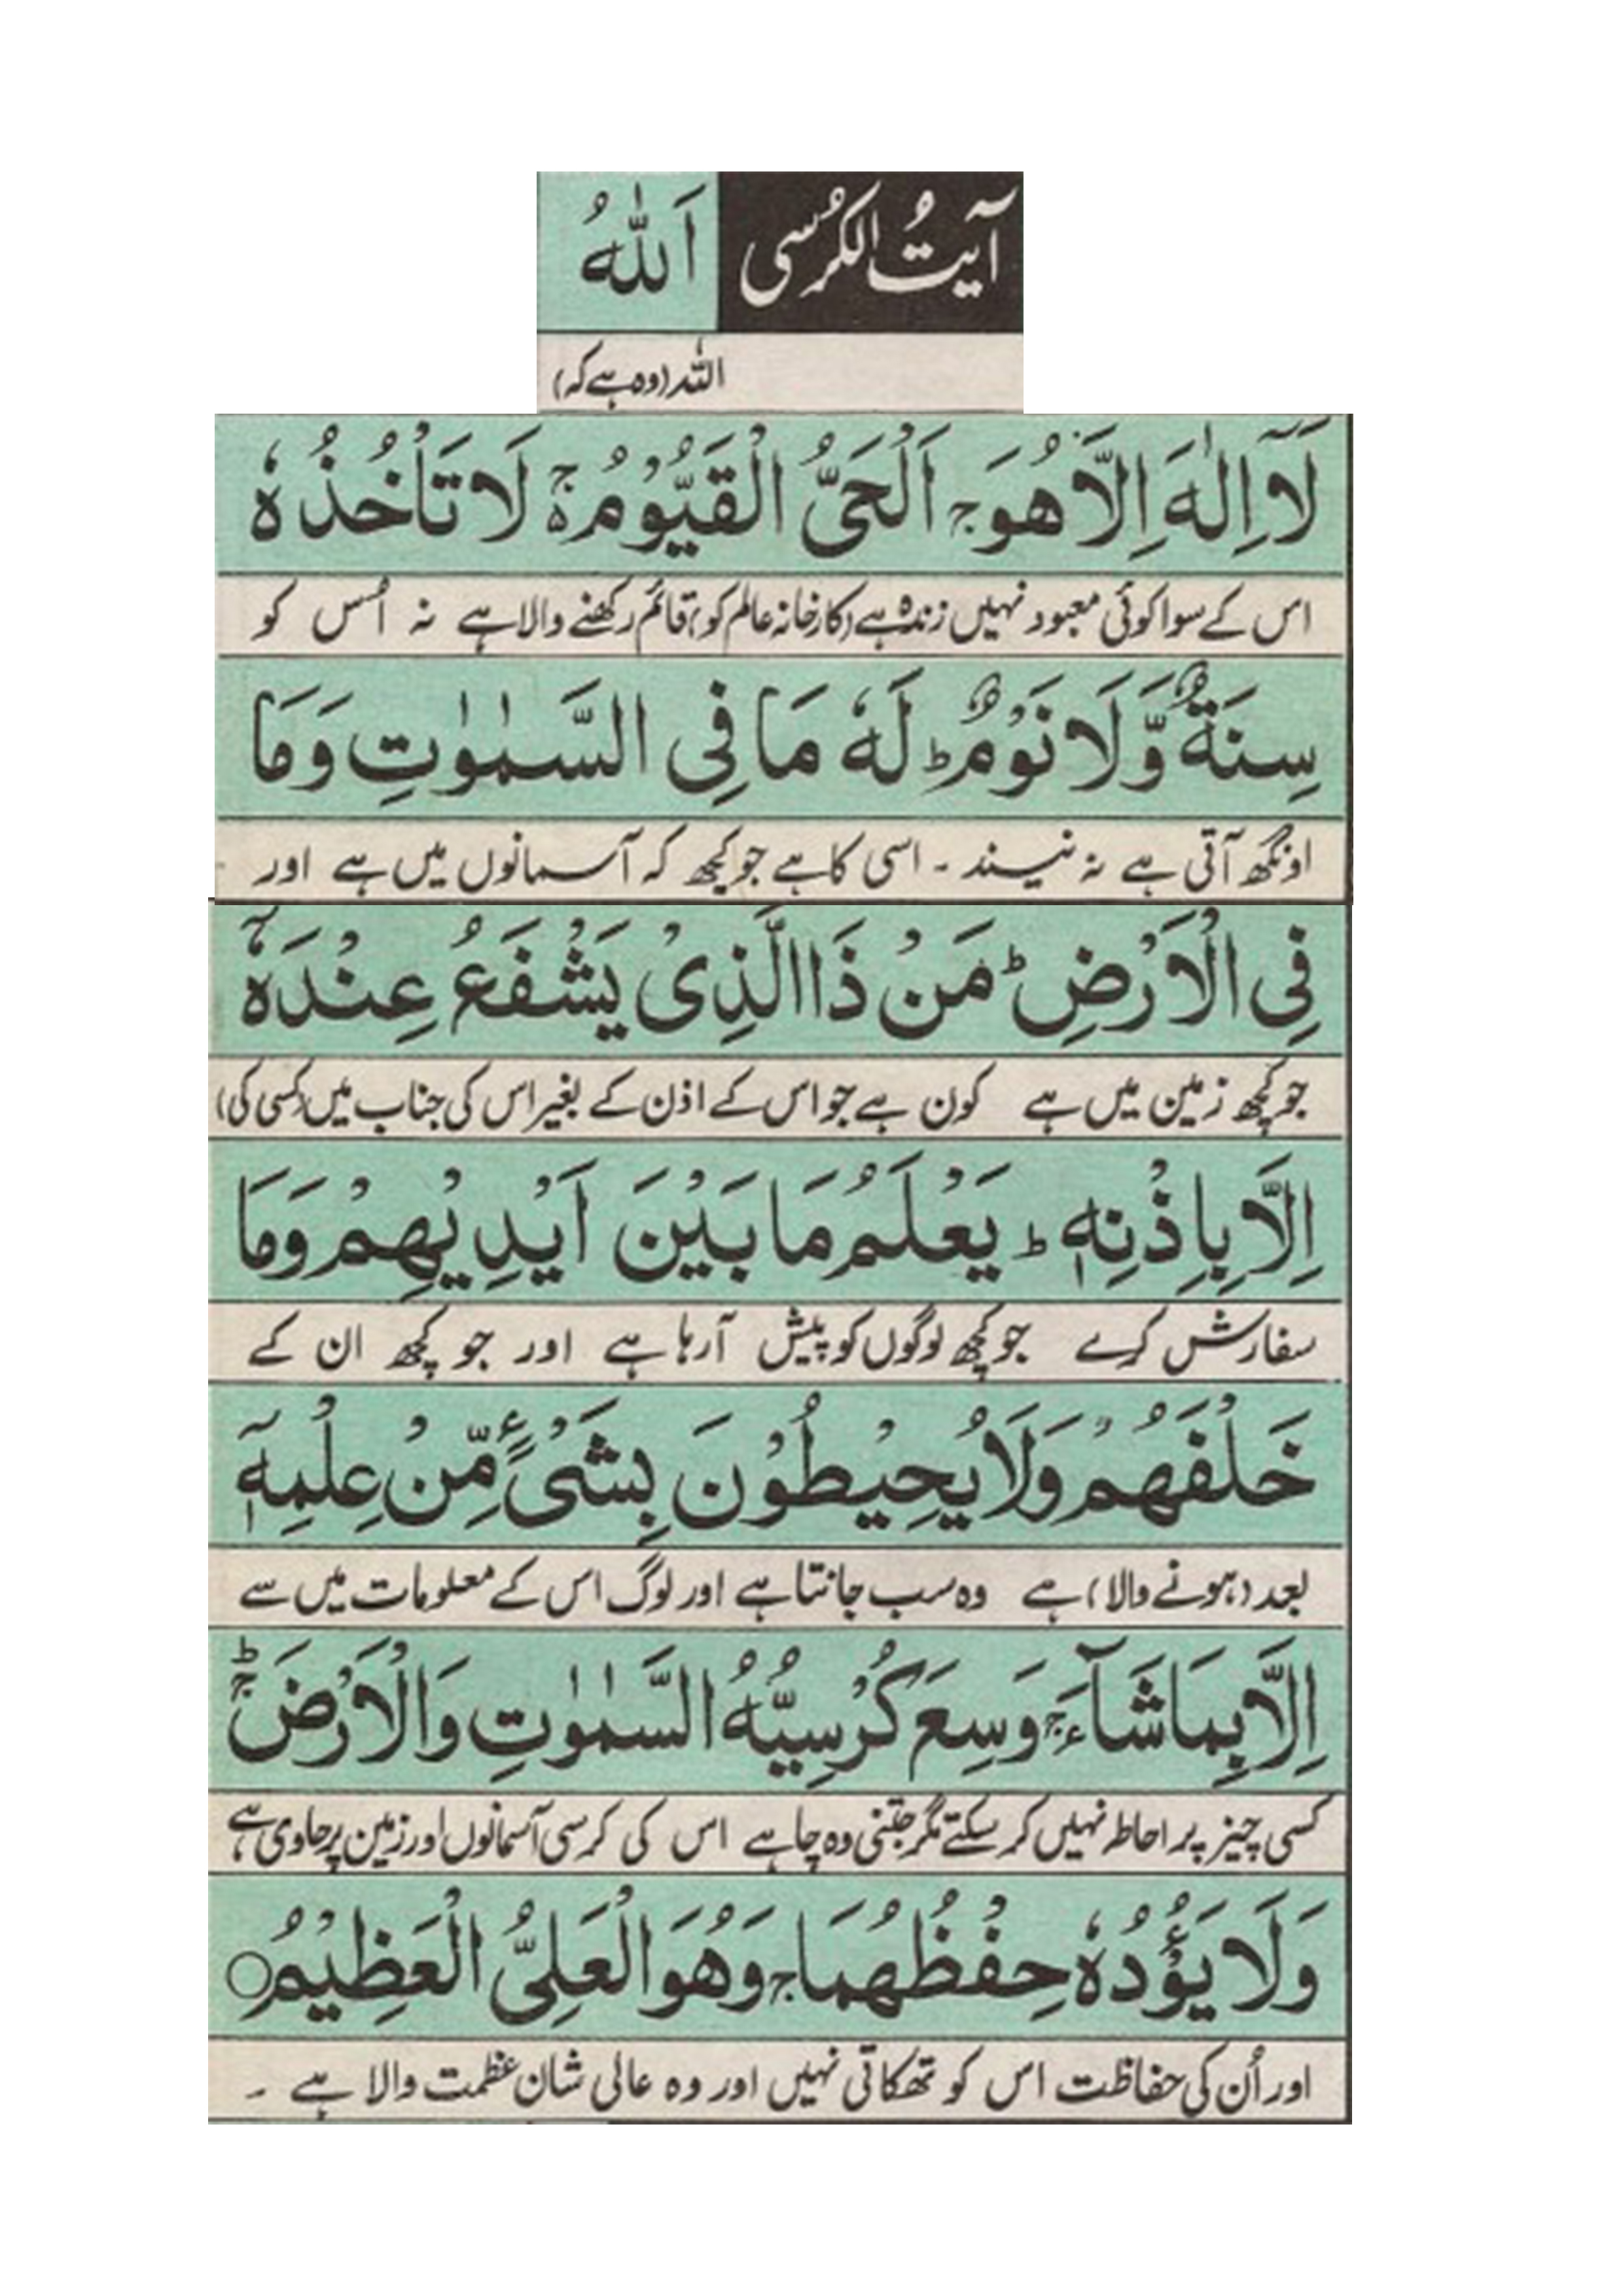 آیتُ الکرُسی اَللّٰهُ
اللہ (وہ ہے کہ)
لَاۤ اِلٰهَ اِلَّا هُوَ ۚ اَلْحَیُّ الْقَیُّوْمُ ۬ۚ لَا تَاْخُذُهٗ
اس کے سوا کوئی معبود نہیں زندہ ہے (کارخانہ عالم کو) قائم رکھنے والا ہے نہ اُس کو
سِنَةٌ وَّلَا نَوْمٌ ؕ لَهٗ مَا فِی السَّمٰوٰتِ وَمَا
اونگھ آتی ہے نہ نیند ۔ اسی کا ہے جو کچھ کہ آسمانوں میں ہے اور
فِی الْاَرْضِ ؕ مَنْ ذَا الَّذِیْ یَشْفَعُ عِنْدَهٗۤ
جو کچھ زمین میں ہے کون ہے جو اس کے اذن کے بغیر اس کی جناب میں (کسی کی)
اِلَّا بِاِذْنِهٖ ؕ یَعْلَمُ مَا بَیْنَ اَیْدِیْهِمْ وَمَا
سفارش کرے جو کچھ لوگوں کو پیش آرہا ہے اور جو کچھ ان کے
خَلْفَهُمْ ۚ وَلَا یُحِیْطُوْنَ بِشَیْءٍ مِّنْ عِلْمِهٖۤ
بعد (ہونے والا) ہے وہ سب جانتا ہے اور لوگ اس کے معلومات میں سے
اِلَّا بِمَا شَآءَ ۚ وَسِعَ كُرْسِیُّهُ السَّمٰوٰتِ وَالْاَرْضَ ۚ
کسی چیز پر احاطہ نہیں کر سکتے مگر جتنی وہ چاہے اس کی کرسی آسمانوں اور زمین پر حاوی ہے
وَلَا یَـُٔوْدُهٗ حِفْظُهُمَا ۚ وَهُوَ الْعَلِیُّ الْعَظِیْمُ ○
اور اُن کی حفاظت اس کو تھکاتی نہیں اور وہ عالی شان عظمت والا ہے ۔